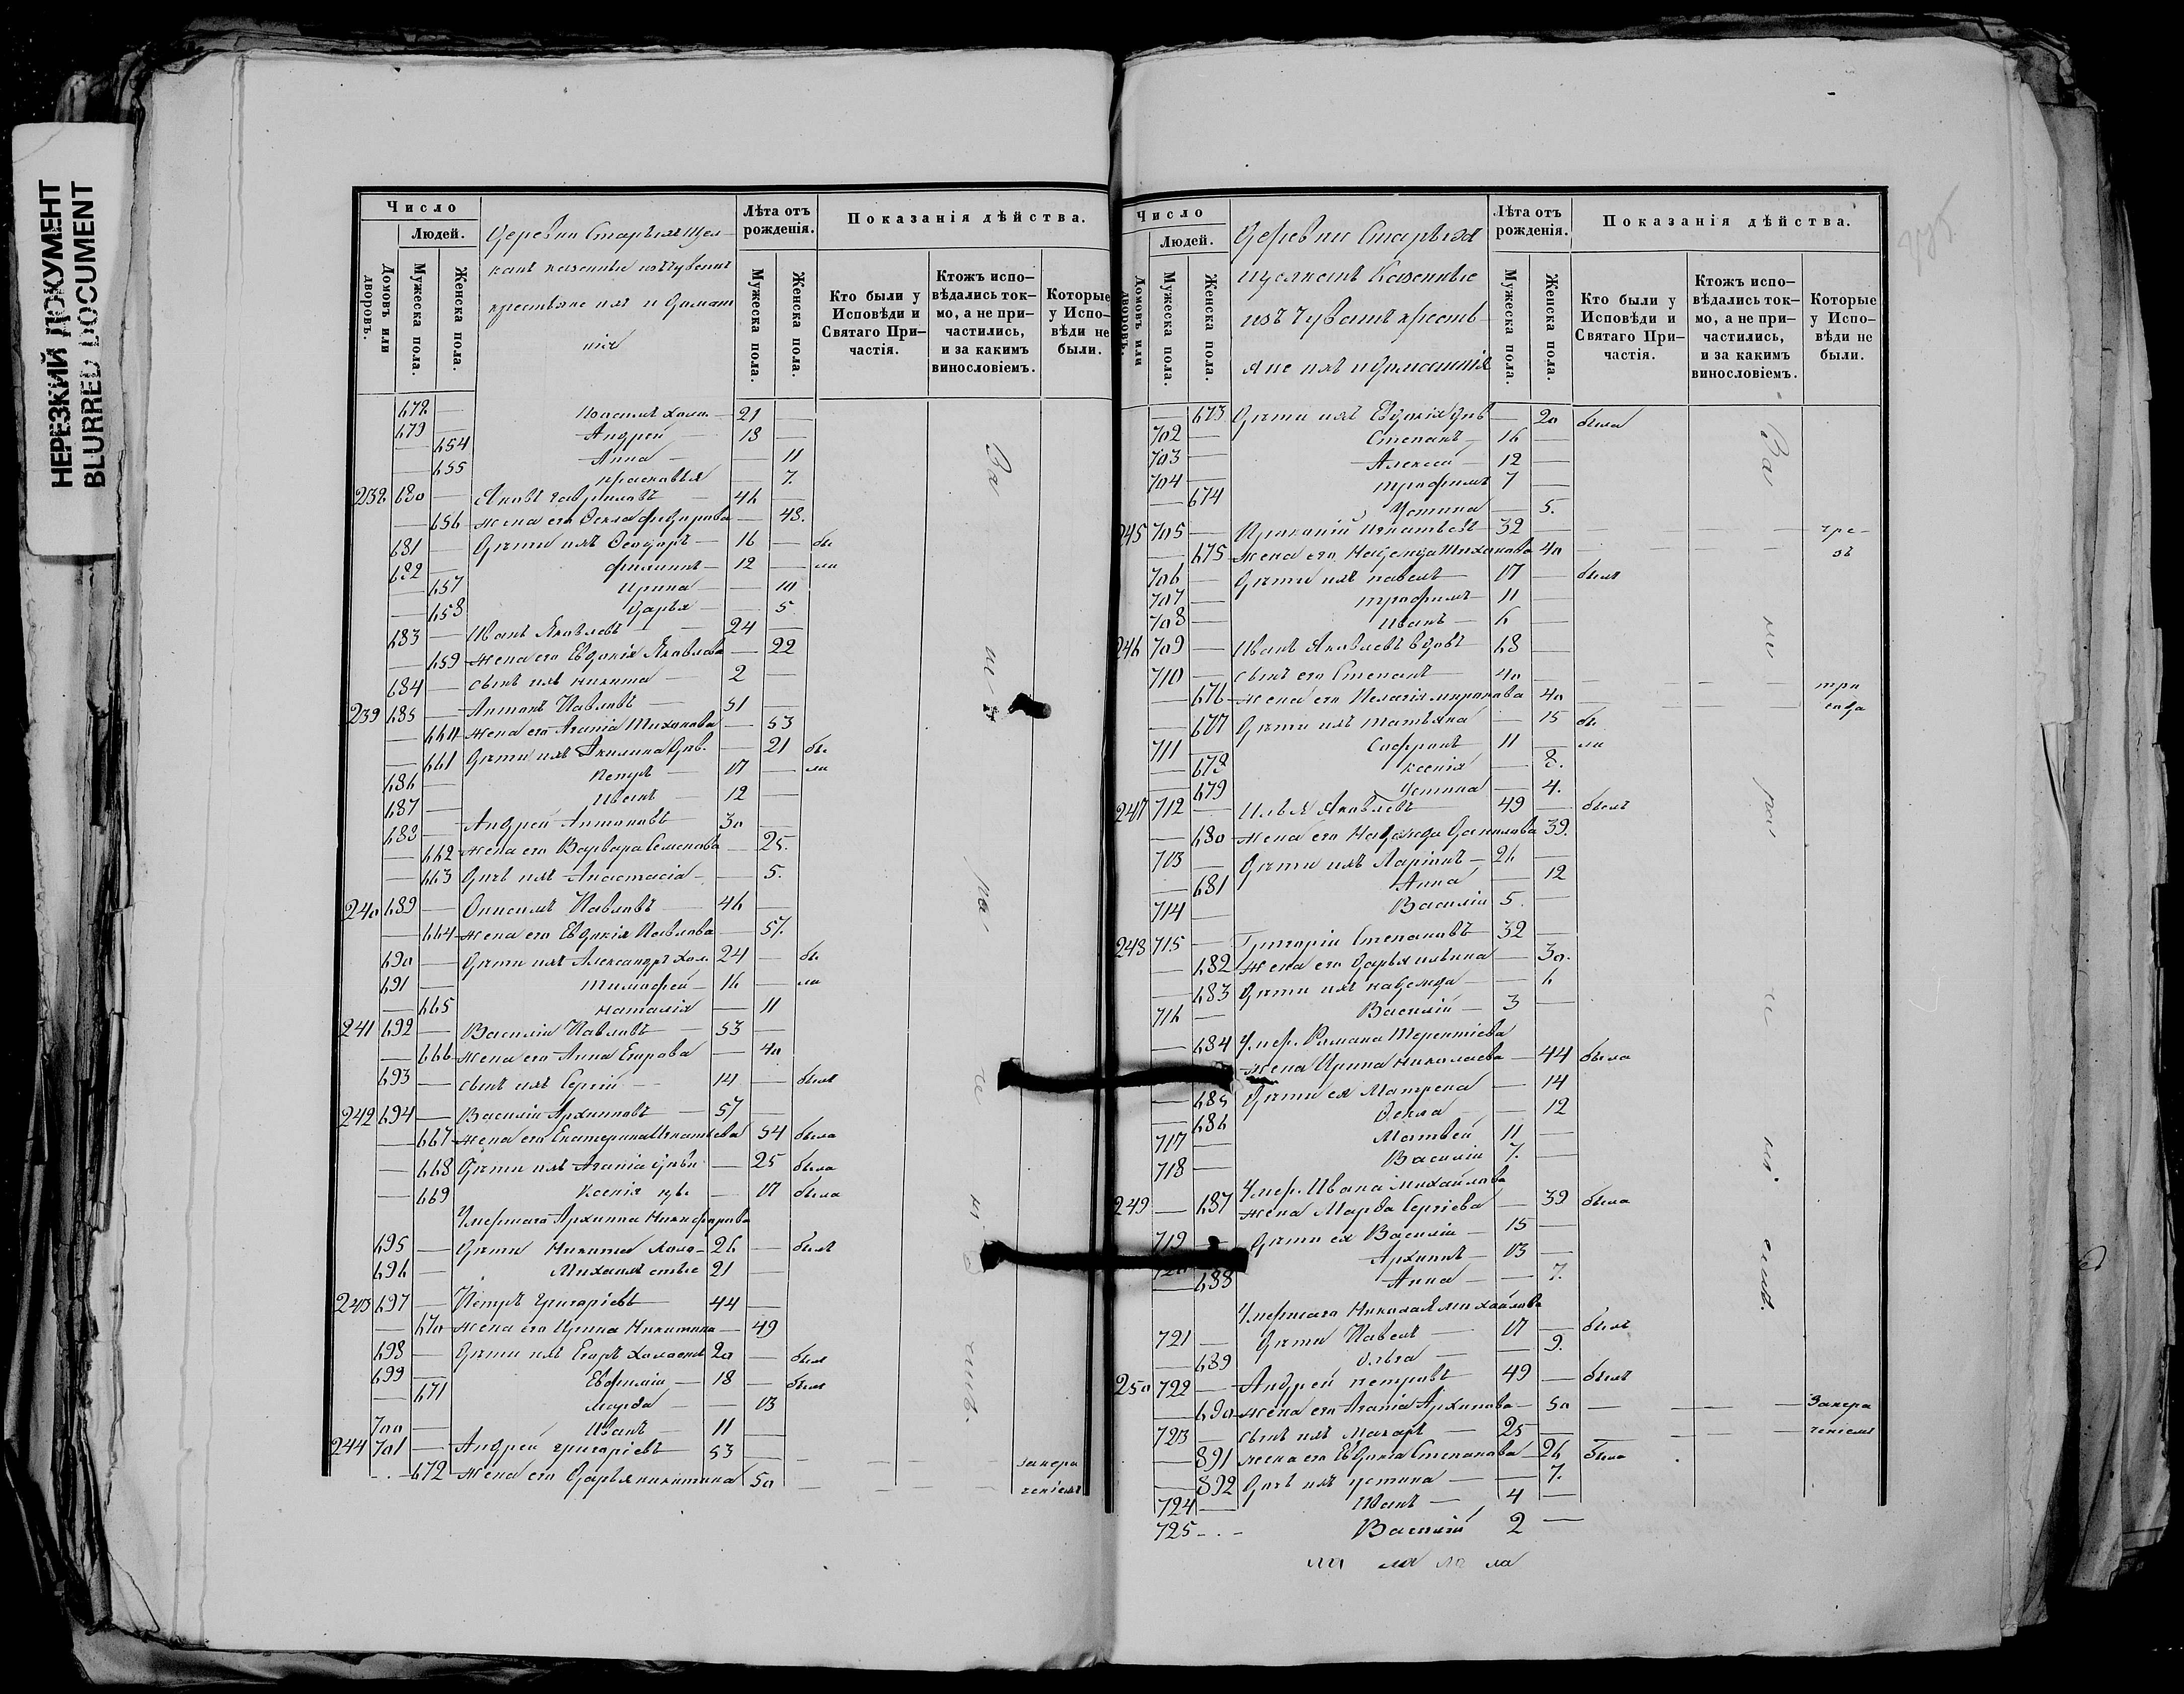 НЕРЕЗКИЙ ДОКУМЕНТ
BLURRED DOCUMENT
Число
Людей.
Домовъ или дворовъ.
Мужеска пола.
Женска пола.
Деревни Старыхъ
крестьяне ихъ и Домаш
нія
Лѣта отъ рожденія.
Мужеска пола.
Женска пола.
Показанія дѣйства.
Кто были у Исповѣди и Святаго При-частія.
Ктожъ испо-вѣдались ток-мо, а не при-частились, и за какимъ винословіемъ.
Которые у Испо-вѣди не были.
678 — холо. — 21 —
679 — Андрей — 18 —
— 654 Анна — — 11
— 655 Прасковья — 7.
238 680 — Яковъ Гавриловъ — 46 —
— 656 жена его Ѳекла Федорова — 48.
681 — Дѣти ихъ Ѳеодоръ — 16 — бы
682 — Филиппъ — 12 — ли
— 657 Ирина — — 10
— 658 Дарья — — 5
683 — Иванъ Яковлевъ — 24 —
— 659 жена его Евдокія Яковлева — 22
684 — сынъ ихъ Никита — 2 —
239 685 — Антонъ Павловъ — 51
— 660 жена его Агапія Тихонова — 53
— 661 Дѣти ихъ Акилина дѣв. — 21 бы
686 — Петръ — 17 — ли
687 — Иванъ 12 —
688 — Андрей Антоновъ 30 —
— 662 жена его Варвара Семенова — 25.
— 663 Дочь ихъ Анастасія — — 5.
240 689 — Онисимъ Павловъ — 46 —
— 664 жена его Евдокія Павлова — 57.
690 — Дѣти ихъ Александръ хол. 24 — бы
691 — Тимофей — 16 — ли
— 665 Наталія — 11
241 692 — Василій Павловъ — 53 —
— 666 жена его Анна Егорова — 40
693 — сынъ ихъ Сергій — 14 — былъ
242 694 — Василій Архиповъ — 57 —
— 667 жена его Екатерина Игнатьева 54 была
— 668 Дѣти ихъ Агапія — 25 была
— 669 Ксенія — 17 была
Умершаго Архиппа Никифорова
695 — Дѣти Никита холо — 26 — былъ
696 — Михаилъ 21 —
243 697 — Петръ Григорьевъ 44 —
— 670 жена его Ирина Никитина — 49
698 — Дѣти ихъ Егоръ 20 — былъ
699 — Евфимій — 18 — былъ
— 671 Марфа — — 13
700 Иванъ — 11 —
244 701 — Андрей Григорьевъ 53 —
— 672 жена его Дарья Никитина 50
за нера
ченіемъ
Число
Людей.
Домовъ или дворовъ.
Мужеска пола.
Женска пола.
Деревни Старыхъ
Казенные
изъ Чувашъ кресть
яне ихъ и домашнія
Лѣта отъ рожденія.
Мужеска пола.
Женска пола.
Показанія дѣйства.
Кто были у Исповѣди и Святаго При-частія.
Ктожъ испо-вѣдались ток-мо, а не при-частились, и за какимъ винословіемъ.
Которые у Испо-вѣди не были.
— 673 Дѣти ихъ Евдокія дѣв — 20 была
702 — Степанъ — 16 —
703 — Алексѣй — 12 —
704 — Трофимъ 7 —
— 674 Устина — 5.
245 705 — Игнатьевъ — 32 —
— 675 жена его Надежда Тихонова 40
706 — Дѣти ихъ Павелъ — 17 — былъ
707 — Трофимъ — 11 —
708 — Иванъ — 6 —
246 709 — Иванъ Яковлевъ вдовъ 68 —
710 — сынъ его Степанъ 40 —
— 676 жена его Пелагія Миронова 40
— 677 Дѣти ихъ Татьяна — 15 бы
711 — Софронъ — 11 — ли
— 678 Ксенія — 8.
— 679 Устина — 4.
247 712 — Илья Яковлевъ 49 — былъ
— 680 жена его Надежда Данилова 39.
713 — Дѣти ихъ Ларіонъ — 26 —
— 681 Анна — 12
714 — Василій 5. —
248 715 — Григорій Степановъ — 32 —
— 682 жена его Дарья Ильина — 30.
— 683 Дѣти ихъ Надежда — — 6
716 — Василій — 3 —
Умер. Романа Терентіева
— 684 жена Ирина Николаева — 44 была
— 685 Дѣти ея Матрена — 14
— 686 Ѳекла — 12
717 — Матвей 11 —
718 — Василій 7. —
Умер. Ивана Михайлова
249 — 687 жена Марфа Сергіева — 39 была
719 — Дѣти ея Василій — 15 —
Архиппъ — 13 —
— 688 Анна — — 7.
Умершаго Николая Михайлова
721 — Дѣти Павелъ — 17 — былъ
— 689 Ольга — — 9.
250 722 — Андрей Петровъ 49 — былъ
— 690 жена его Агапія Архипова — 50 — за нера
723 — сынъ ихъ Макаръ — 25 — ченіемъ
— 891 жена его Евдокія Степанова — 26 была
— 892 Дочь ихъ Устина — — 7.
724 — Иванъ — 4 —
725 — Василій 2 —